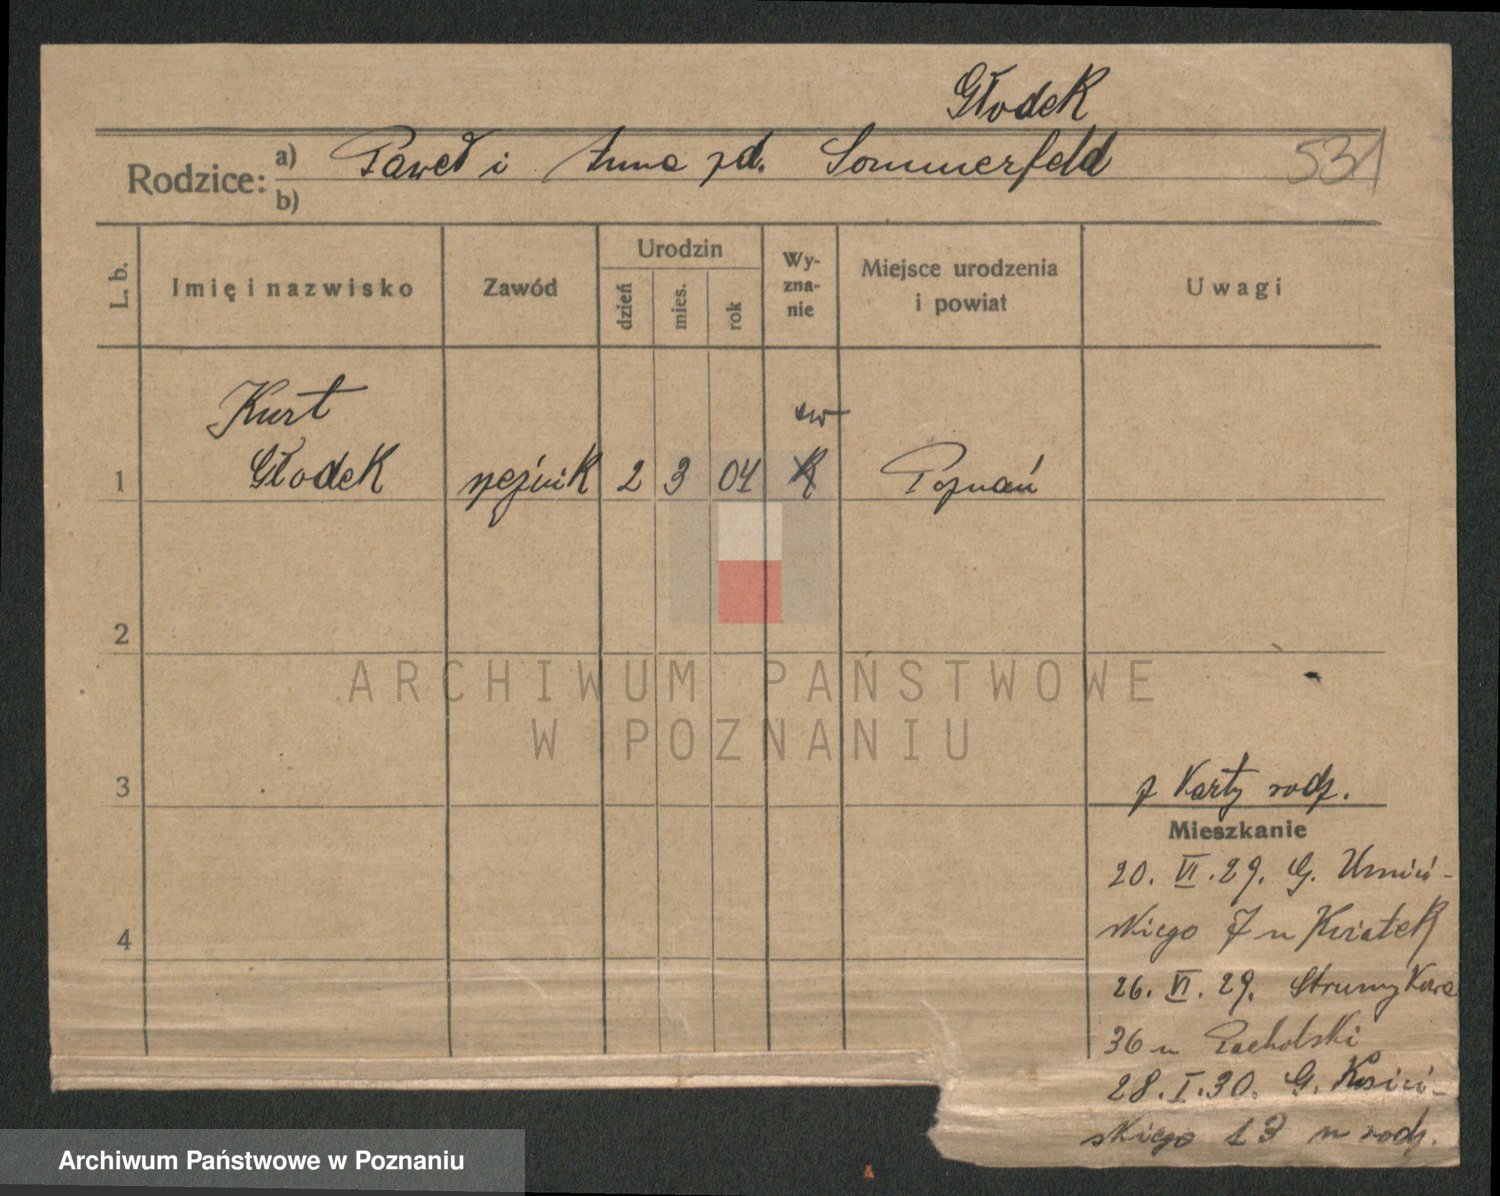 Głodek
Rodzice: a) Paweł i Anna zd. Sommerfeld 531
b)
L. b. Imię i nazwisko Zawód Urodzin dzień mies. rok Wyznanie Miejsce urodzenia i powiat Uwagi
Kurt ew
1 Głodek rzeźnik 2 3 04 Poznań
2
3
z Karty rodz.
Mieszkanie
20. VI. 29. G. Umiń-
skiego 7 u Kwiatek
4
26. VI. 29. Strumykowa
36 u Pacholski
28. I. 30. G. Kosiń-
skiego 13 u rodz.
ARCHIWUM PAŃSTWOWE
W POZNANIU
Archiwum Państwowe w Poznaniu